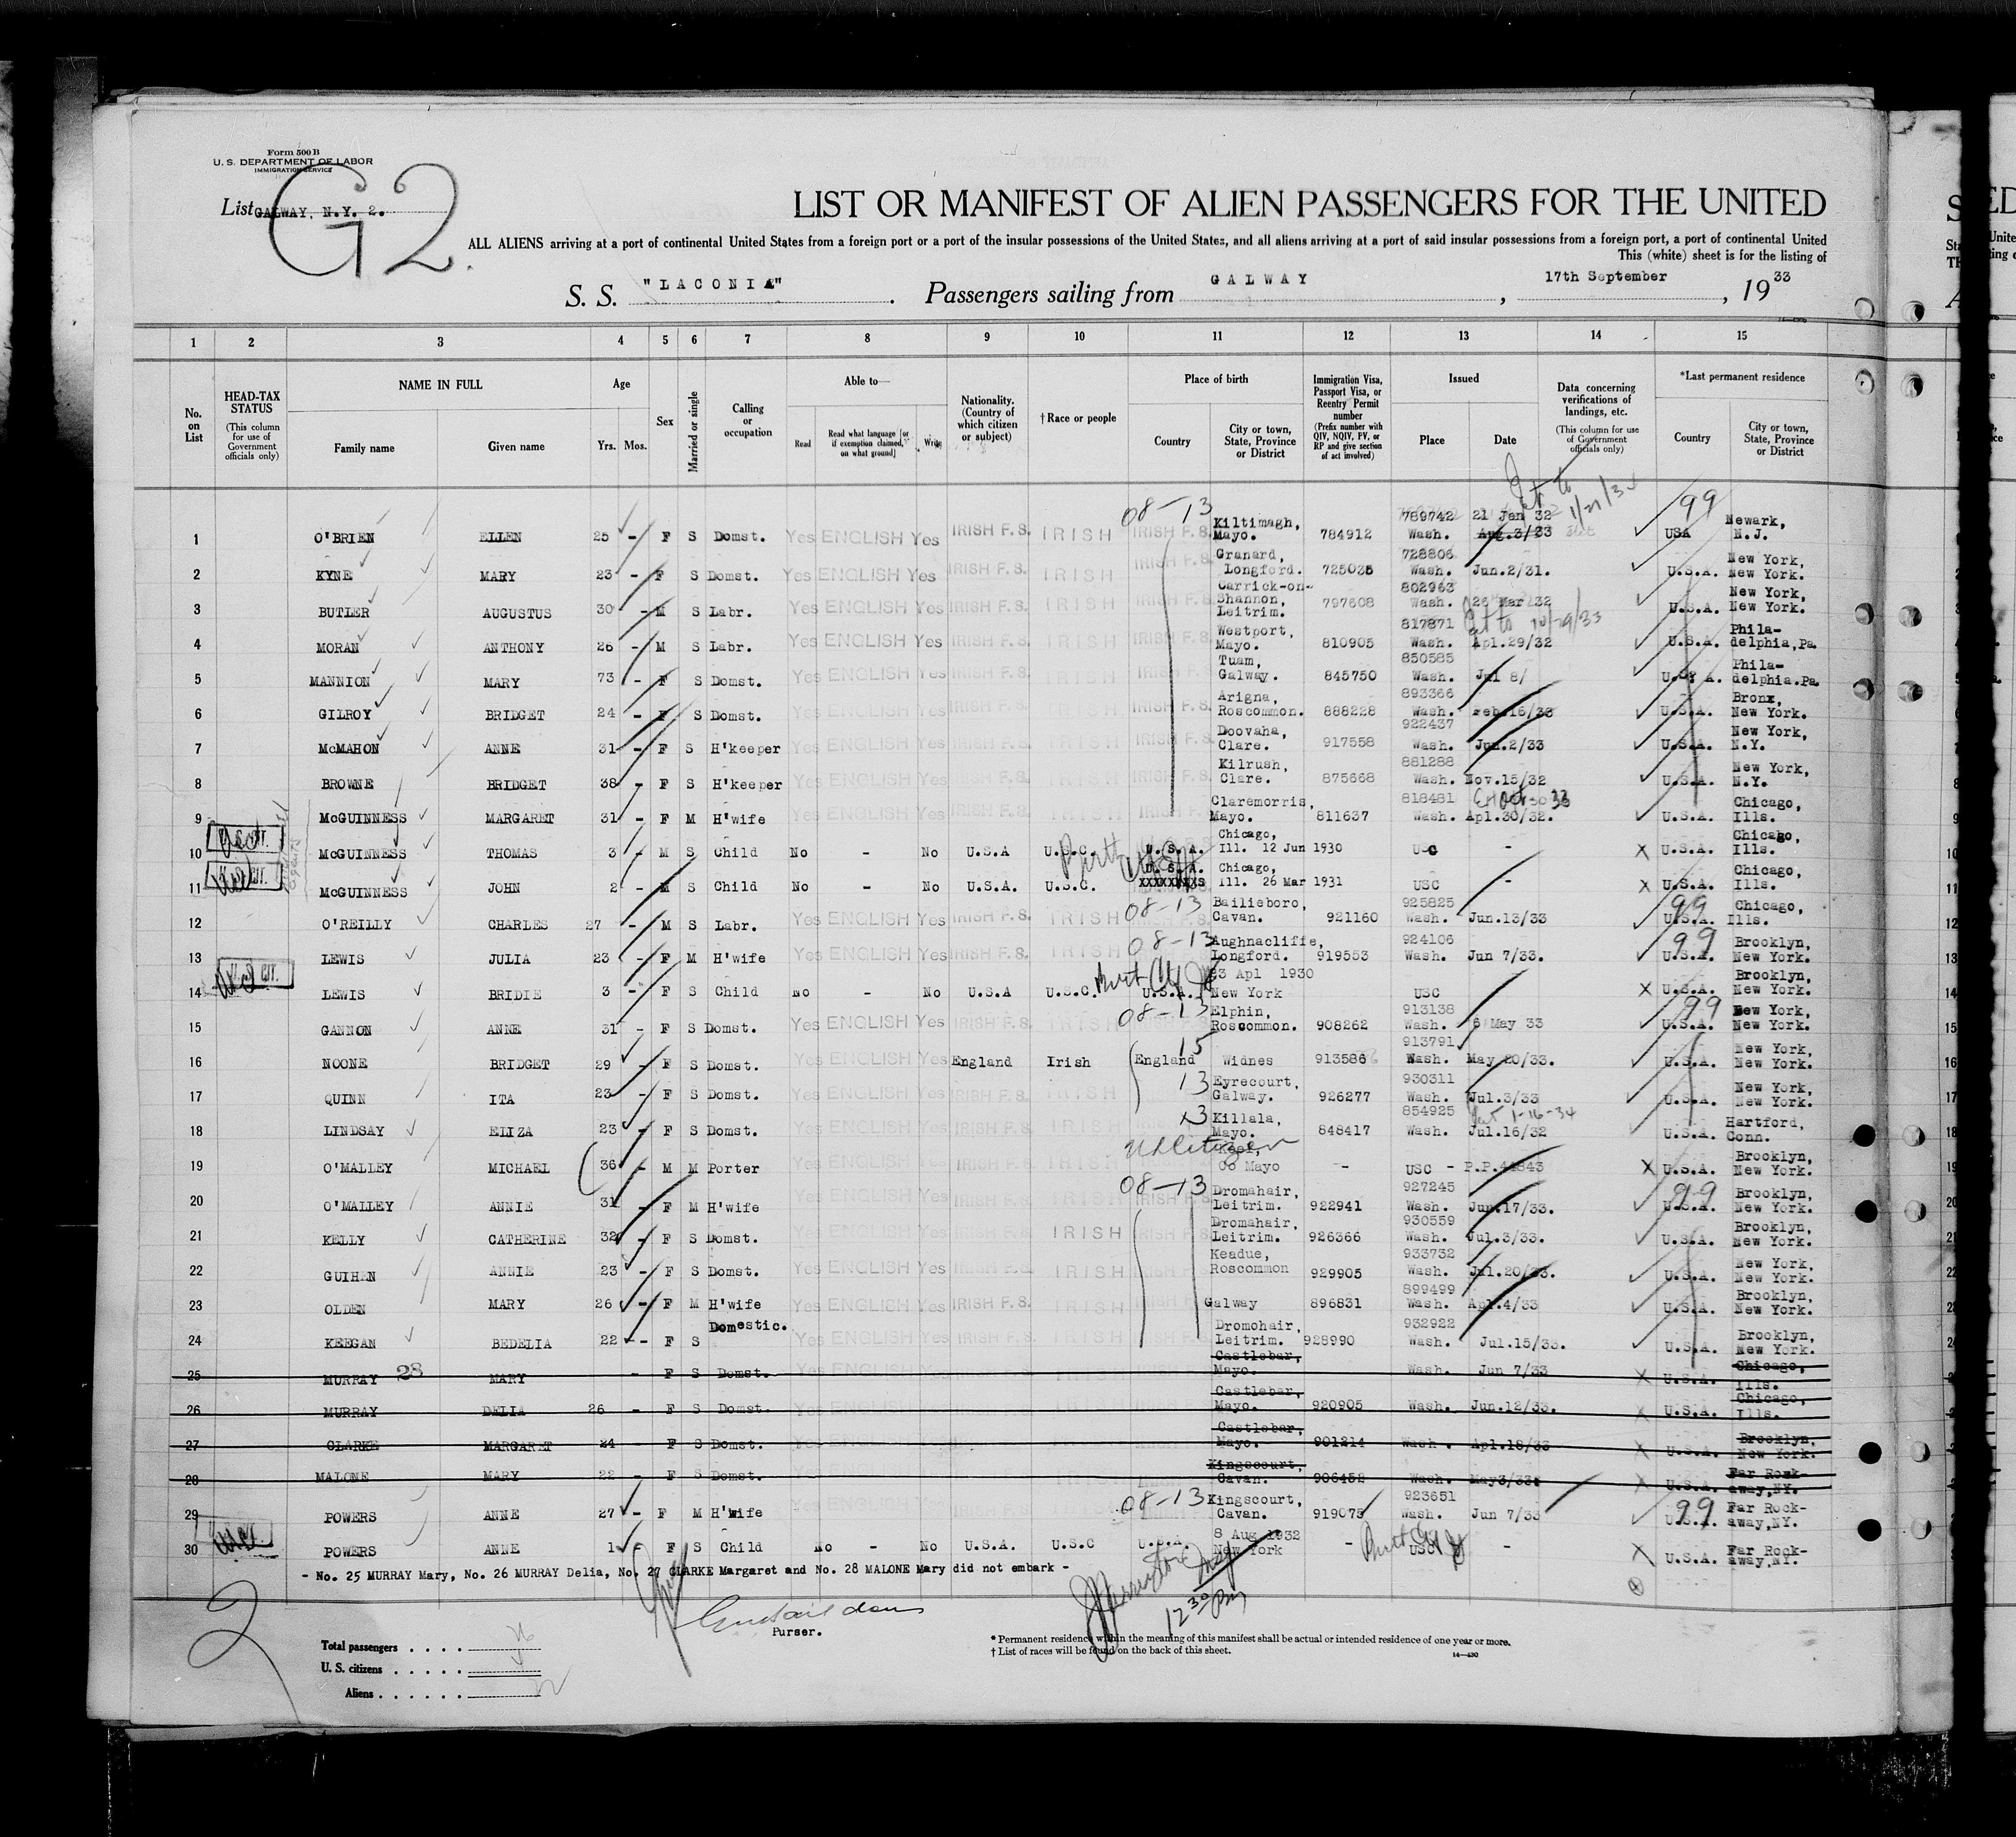 Form 500 B
U. S. DEPARTMENT OF LABOR
IMMIGRATION SERVICE
List GALWAY, N.Y. 2.
G2
LIST OR MANIFEST OF ALIEN PASSENGERS FOR THE UNITED
ALL ALIENS arriving at a port of continental United States from a foreign port or a port of the insular possessions of the United States, and all aliens arriving at a port of said insular possessions from a foreign port, a port of continental United
This (white) sheet is for the listing of
S. S. "LACONIA" . Passengers sailing from GALWAY , 17th September , 19 33
1 2 3 4 5 6 7 8 9 10 11 12 13 14 15
No. on List
HEAD-TAX STATUS (This column for use of Government officials only)
NAME IN FULL Family name Given name
Age Yrs. Mos.
Sex
Married or single
Calling or occupation
Able to— Read Read what language [or if exemption claimed, on what ground] Write
Nationality. (Country of which citizen or subject)
† Race or people
Place of birth Country City or town, State, Province or District
Immigration Visa, Passport Visa, or Reentry Permit number (Prefix number with QIV, NQIV, PV, or RP and give section of act involved)
Issued Place Date
Data concerning verifications of landings, etc. (This column for use of Government officials only)
*Last permanent residence Country City or town, State, Province or District
1 O'BRIEN ELLEN 25 - F S Domst. Yes ENGLISH Yes IRISH F.S. IRISH 08-13 IRISH F.S. Kiltimagh, Mayo. 784912 789742 Wash. 21 Jan 32 Aug.3/33 1/21/34 99 USA Newark, N.J.
2 KYNE MARY 23 - F S Domst. Yes ENGLISH Yes IRISH F.S. IRISH IRISH F.S. Granard, Longford. 725035 728806 Wash. Jun.2/31. U.S.A. New York, New York.
3 BUTLER AUGUSTUS 30 - M S Labr. Yes ENGLISH Yes IRISH F.S. IRISH IRISH F.S. Carrick-on-Shannon, Leitrim. 797608 802963 Wash. 26 Mar 32 U.S.A. New York, New York.
4 MORAN ANTHONY 26 - M S Labr. Yes ENGLISH Yes IRISH F.S. IRISH IRISH F.S. Westport, Mayo. 810905 817871 Wash. Apl.29/32 10/29/33 U.S.A. Phila-delphia,Pa.
5 MANNION MARY 73 - F S Domst. Yes ENGLISH Yes IRISH F.S. IRISH IRISH F.S. Tuam, Galway. 845750 850585 Wash. Jul 8/ U.S.A. Phila-delphia.Pa.
6 GILROY BRIDGET 24 - F S Domst. Yes ENGLISH Yes IRISH F.S. IRISH IRISH F.S. Arigna, Roscommon. 888228 893366 Wash. Feb.16/33 U.S.A. Bronx, New York.
7 McMAHON ANNE 31 - F S H'keeper Yes ENGLISH Yes IRISH F.S. IRISH IRISH F.S. Doovaha, Clare. 917558 922437 Wash. Jun.2/33 U.S.A. New York, N.Y.
8 BROWNE BRIDGET 38 - F S H'keeper Yes ENGLISH Yes IRISH F.S. IRISH IRISH F.S. Kilrush, Clare. 875668 881288 Wash. Nov.15/32 U.S.A. New York, N.Y.
9 McGUINNESS MARGARET 31 - F M H'wife Yes ENGLISH Yes IRISH F.S. IRISH IRISH F.S. Claremorris, Mayo. 811637 818481 Wash. Apl.30/32. U.S.A. Chicago, Ills.
10 McGUINNESS THOMAS 3 - M S Child No - No U.S.A U.S.C. U.S.A. Chicago, Ill. 12 Jun 1930 USC - X U.S.A. Chicago, Ills.
11 McGUINNESS JOHN 2 - M S Child No - No U.S.A. U.S.C. U.S.A. XXXXXXXXS Chicago, Ill. 26 Mar 1931 USC - X U.S.A. Chicago, Ills.
12 O'REILLY CHARLES 27 - M S Labr. Yes ENGLISH Yes IRISH F.S. IRISH 08-13 IRISH F.S. Bailieboro, Cavan. 921160 925825 Wash. Jun.13/33 99 U.S.A. Chicago, Ills.
13 LEWIS JULIA 23 - F M H'wife Yes ENGLISH Yes IRISH F.S. IRISH 08-13 Aughnacliffe, Longford. 919553 924106 Wash. Jun 7/33. 99 U.S.A. Brooklyn, New York.
14 LEWIS BRIDIE 3 - F S Child No - No U.S.A U.S.C. U.S.A. 23 Apl 1930 New York USC X U.S.A. Brooklyn, New York.
15 GANNON ANNE 31 - F S Domst. Yes ENGLISH Yes IRISH F.S. IRISH 08-13 Elphin, Roscommon. 908262 913138 Wash. 6 May 33 99 U.S.A. New York, New York.
16 NOONE BRIDGET 29 - F S Domst. Yes ENGLISH Yes England Irish England 15 Widnes 913586 913791 Wash. May 20/33. U.S.A. New York, New York.
17 QUINN ITA 23 - F S Domst. Yes ENGLISH Yes IRISH F.S. IRISH 13 Eyrecourt, Galway. 926277 930311 Wash. Jul.3/33 U.S.A. New York, New York.
18 LINDSAY ELIZA 23 - F S Domst. Yes ENGLISH Yes IRISH F.S. IRISH 13 Killala, Mayo. 848417 854925 Wash. Jul.16/32 1-16-34 U.S.A. Hartford, Conn.
19 O'MALLEY MICHAEL 36 - M M Porter Yes ENGLISH Yes IRISH F.S. IRISH US Citizen Co Mayo - USC - P.P.44843 X U.S.A. Brooklyn, New York.
20 O'MALLEY ANNIE 31 - F M H'wife Yes ENGLISH Yes IRISH F.S. IRISH 08-13 IRISH F.S. Dromahair, Leitrim. 922941 927245 Wash. Jun.17/33. 99 U.S.A. Brooklyn, New York.
21 KELLY CATHERINE 32 - F S Domst. Yes ENGLISH Yes IRISH F.S. IRISH IRISH F.S. Dromahair, Leitrim. 926366 930559 Wash. Jul.3/33. U.S.A. Brooklyn, New York.
22 GUIHEN ANNIE 23 - F S Domst. Yes ENGLISH Yes IRISH F.S. IRISH IRISH F.S. Keadue, Roscommon 929905 933732 Wash. Jul.20/33. U.S.A. New York, New York.
23 OLDEN MARY 26 - F M H'wife Yes ENGLISH Yes IRISH F.S. IRISH IRISH F.S. Galway 896831 899499 Wash. Apl.4/33 U.S.A. Brooklyn, New York.
24 KEEGAN BEDELIA 22 - F S Domestic. Yes ENGLISH Yes IRISH F.S. IRISH IRISH F.S. Dromohair, Leitrim. 928990 932922 Wash. Jul.15/33. U.S.A. Brooklyn, New York.
25 MURRAY 28 MARY - F S Domst. Castlebar, Mayo. Wash. Jun 7/33 X U.S.A. Chicago, Ills.
26 MURRAY DELIA 26 - F S Domst. Castlebar, Mayo. 920905 Wash. Jun.12/33. X U.S.A. Chicago, Ills.
27 CLARKE MARGARET 24 - F S Domst. Castlebar, Mayo. 901214 Wash. Apl.18/33 X U.S.A. Brooklyn, New York.
28 MALONE MARY 22 - F S Domst. Kingscourt, Cavan. 906452 Wash. May3/33. X U.S.A. Far Rock-away,NY.
29 POWERS ANNE 27 - F M H'wife Yes ENGLISH Yes IRISH F.S. IRISH 08-13 Kingscourt, Cavan. 919075 923651 Wash. Jun 7/33 99 U.S.A. Far Rock-away,NY.
30 POWERS ANNE 1 - F S Child No - No U.S.A. U.S.C U.S.A. 8 Aug 1932 New York - USC - X U.S.A. Far Rock-away,NY.
- No. 25 MURRAY Mary, No. 26 MURRAY Delia, No. 27 CLARKE Margaret and No. 28 MALONE Mary did not embark -
Purser.
12 30 pm
2
Total passengers . . . .
U. S. citizens . . . . .
Aliens . . . . . .
* Permanent residence within the meaning of this manifest shall be actual or intended residence of one year or more.
† List of races will be found on the back of this sheet.
14—430